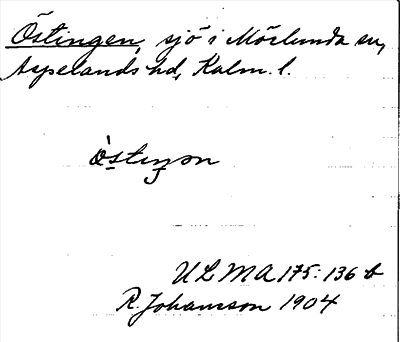 Östingen, sjö i Mörlunda sn,
Aspelands hd, Kalm. l.
östiŋon
ULMA 175:136 b
R. Johansson 1904